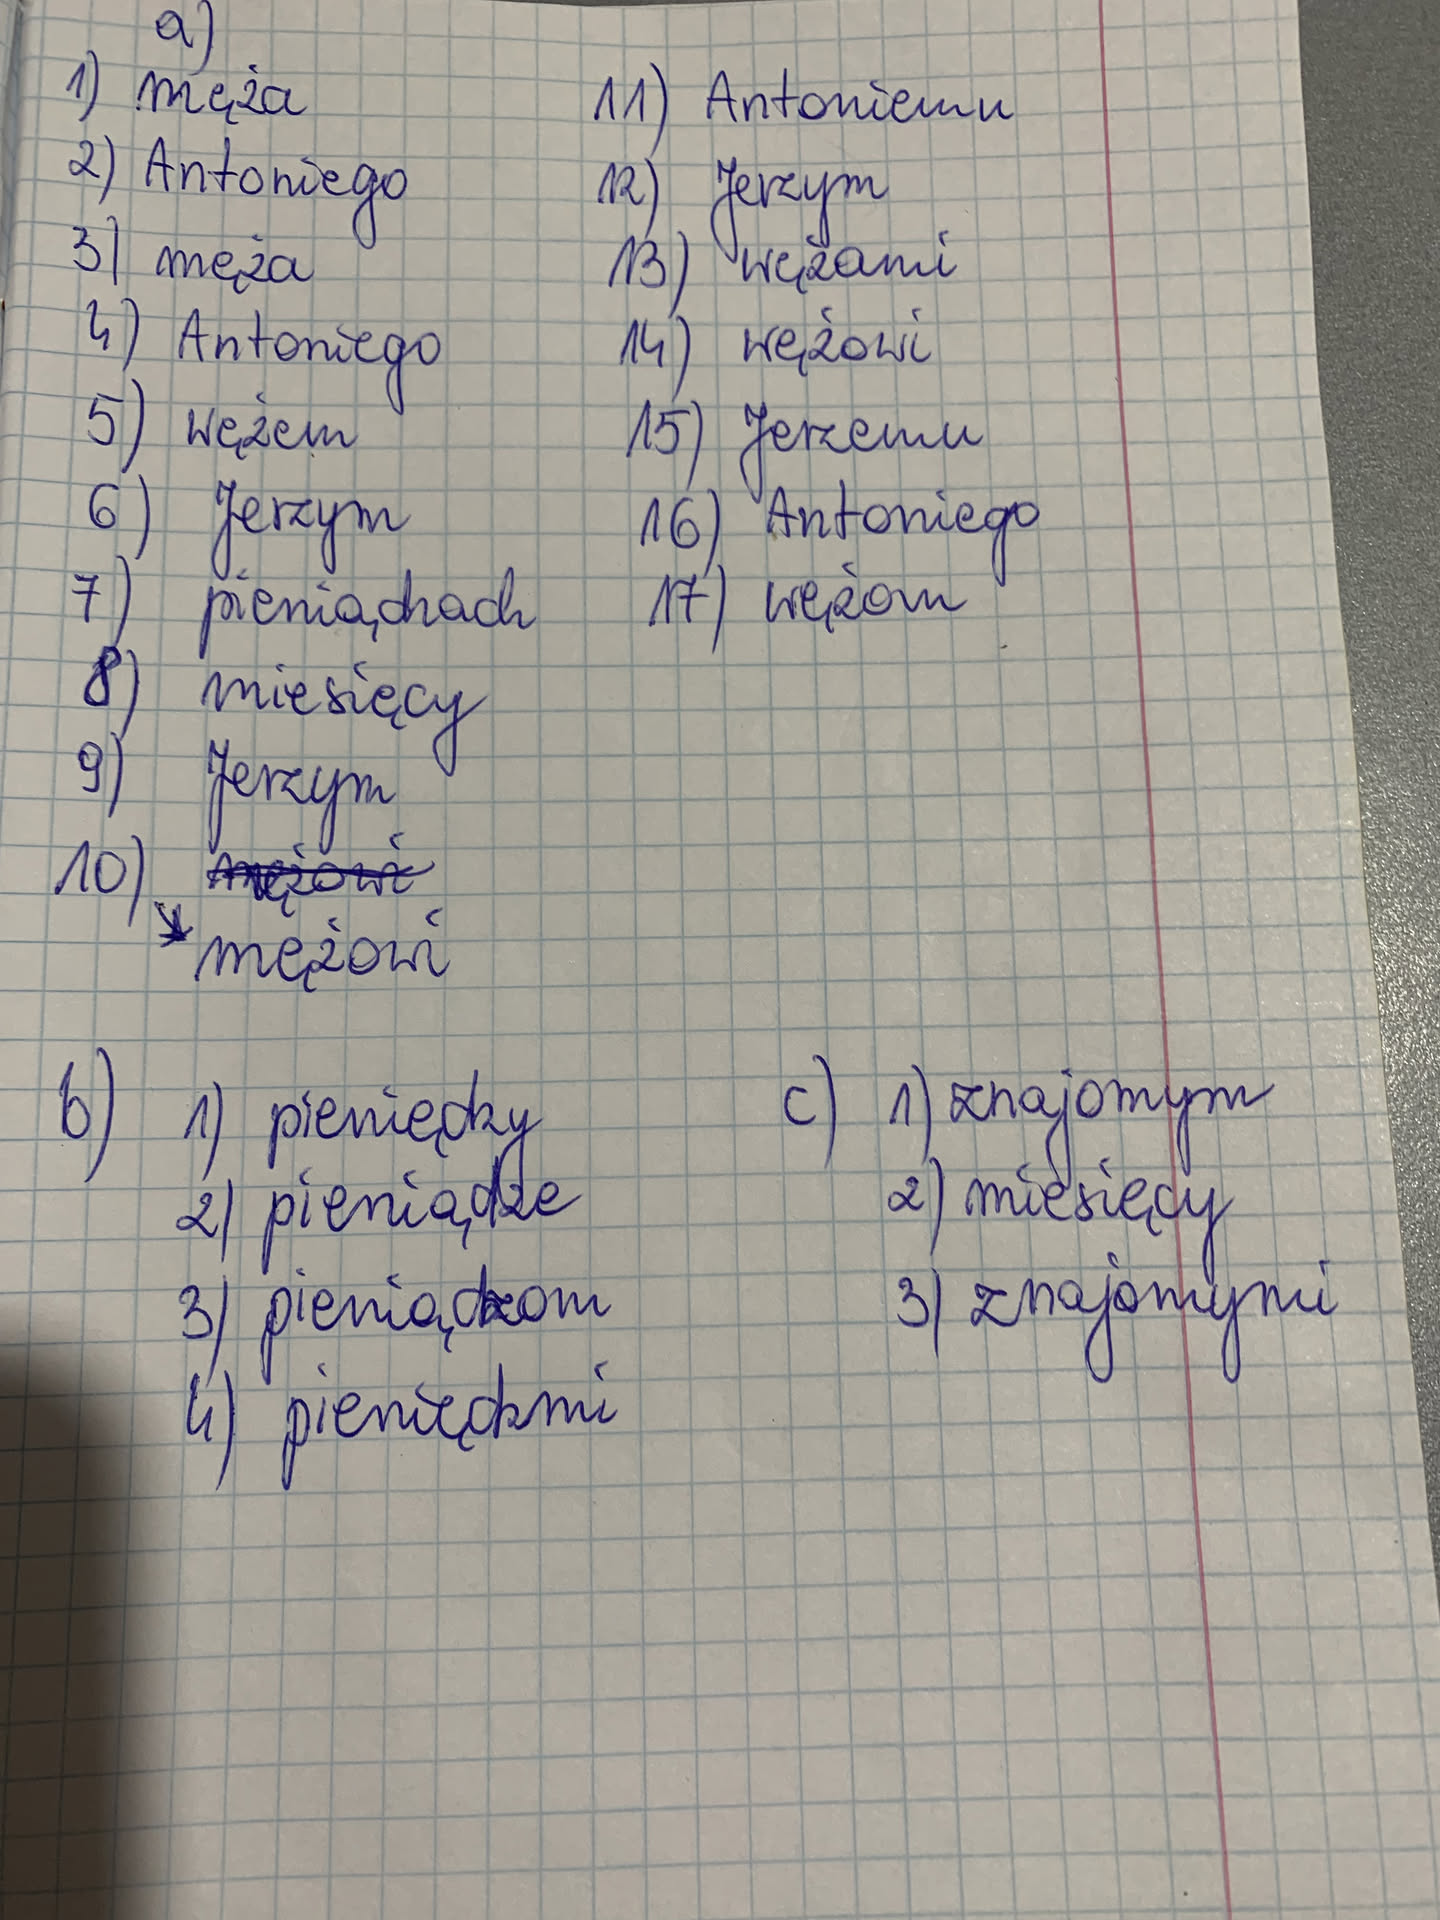 a)
1) męża
2) Antoniego
3) męża
4) Antoniego
5) wężem
6) Jerzym
7) pieniądzach
8) miesięcy
9) Jerzym
10) mężowi
mężowi
11) Antoniemu
12) Jerzym
13) wężami
14) wężowi
15) Jerzemu
16) Antoniego
17) wężom
b) 1) pieniędzy
2) pieniądze
3) pieniądzom
4) pieniędzmi
c) 1) znajomym
2) miesięcy
3) znajomymi